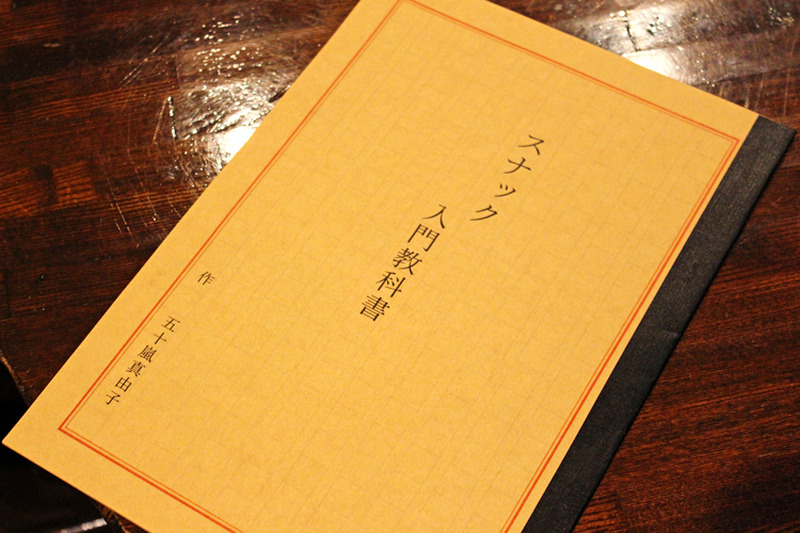 スナック
入門教科書
作 五十嵐真由子